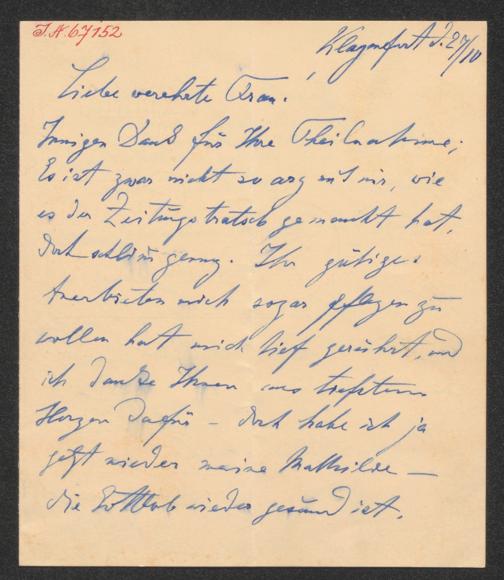 I.N. 67152
Klagenfurt d. 27/10
Liebe verehrte Frau!
Innigen Dank für Ihre Theilnahme;
Es ist zwar nicht so arg mit mir, wie
es der Zeitungstratsch gemacht hat,
doch schlim genug. Ihr gütiges
Anerbieten mich sogar pflegen zu
wollen hat mich tief gerührt, und
ich danke Ihnen aus tiefstem
Herzen dafür – doch habe ich ja
jetzt wieder meine Mathilde –
die Gottlob wieder gesund ist.